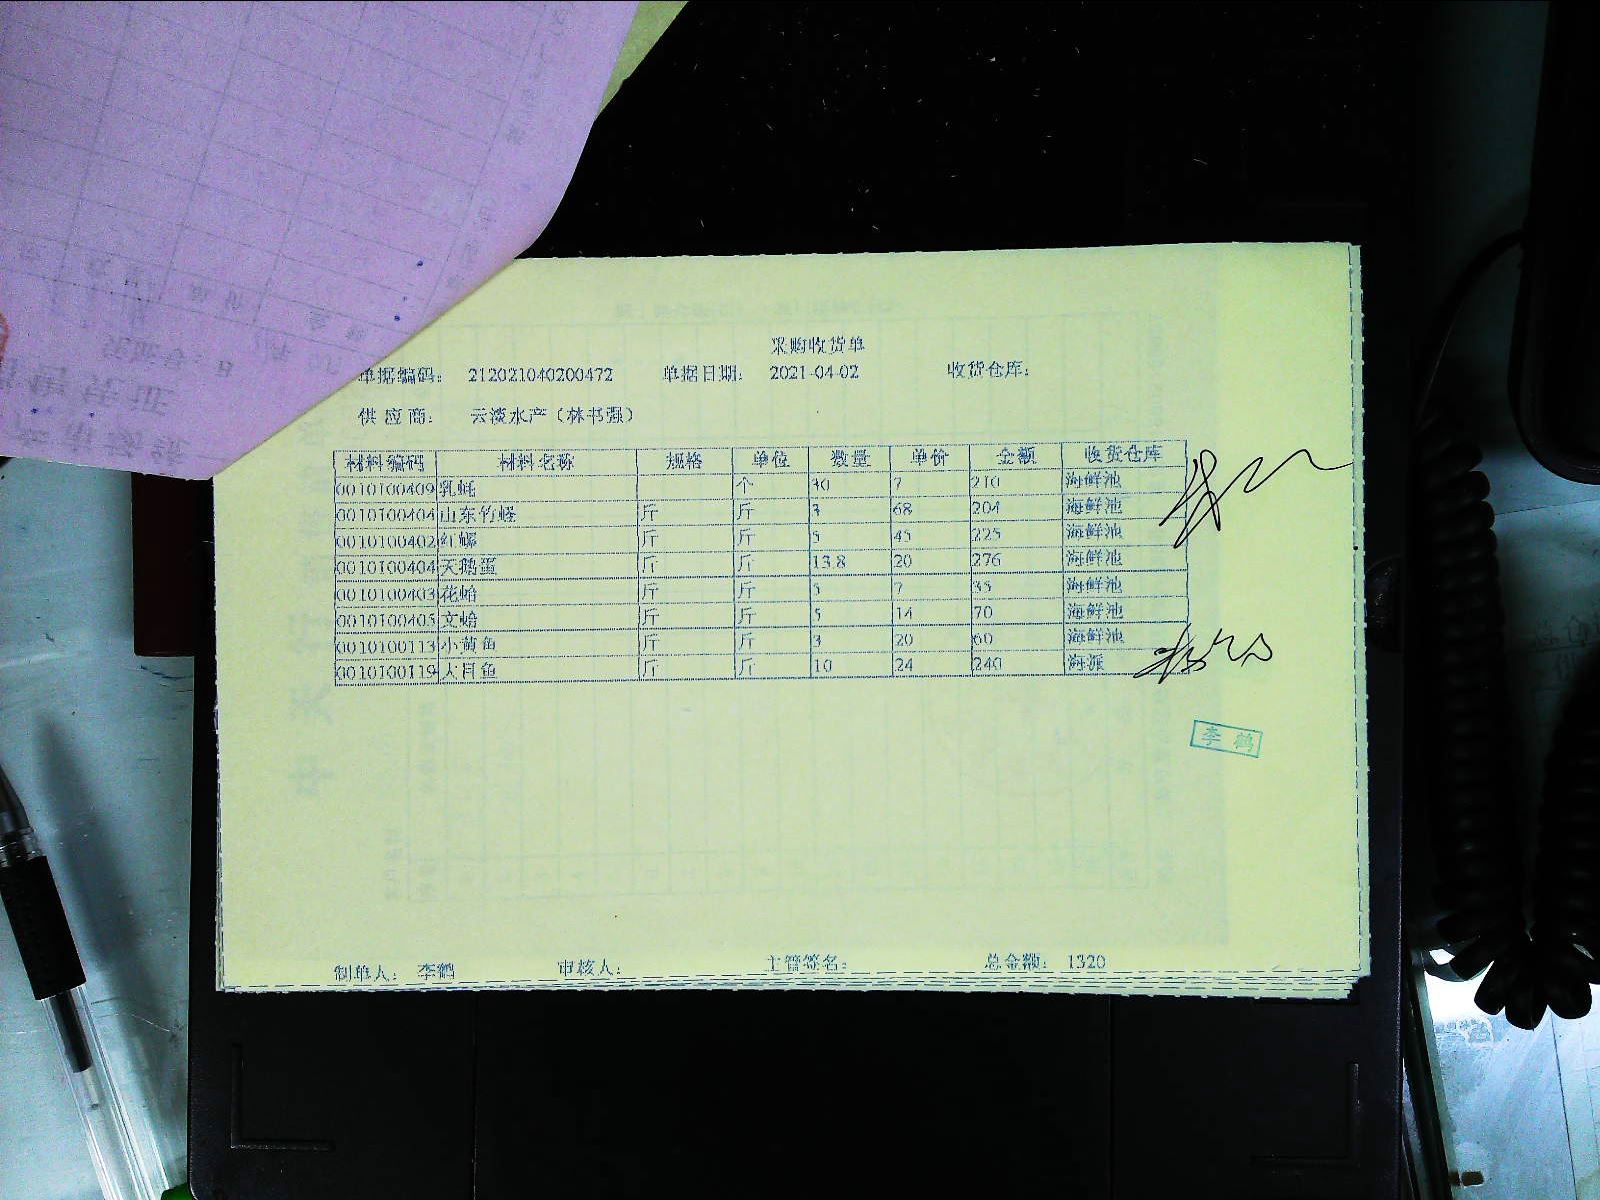 采购收货单
单据编码： 212021040200472 单据日期： 2021-04-02 收货仓库：
供应商： 云淡水产（林书强）
材料编码 材料名称 规格 单位 数量 单价 金额 收货仓库
0010100409 乳蚝 个 30 7 210 海鲜池
0010100404 山东竹蛏 斤 斤 3 68 204 海鲜池
0010100402 红螺 斤 斤 5 45 225 海鲜池
0010100404 天鹅蛋 斤 斤 13.8 20 276 海鲜池
0010100403 花蛤 斤 斤 5 7 35 海鲜池
0010100405 文蛤 斤 斤 5 14 70 海鲜池
0010100113 小黄鱼 斤 斤 3 20 60 海鲜池
0010100119 大目鱼 斤 斤 10 24 240 海派
李鹤
制单人： 李鹤 审核人： 主管签名： 总金额： 1320